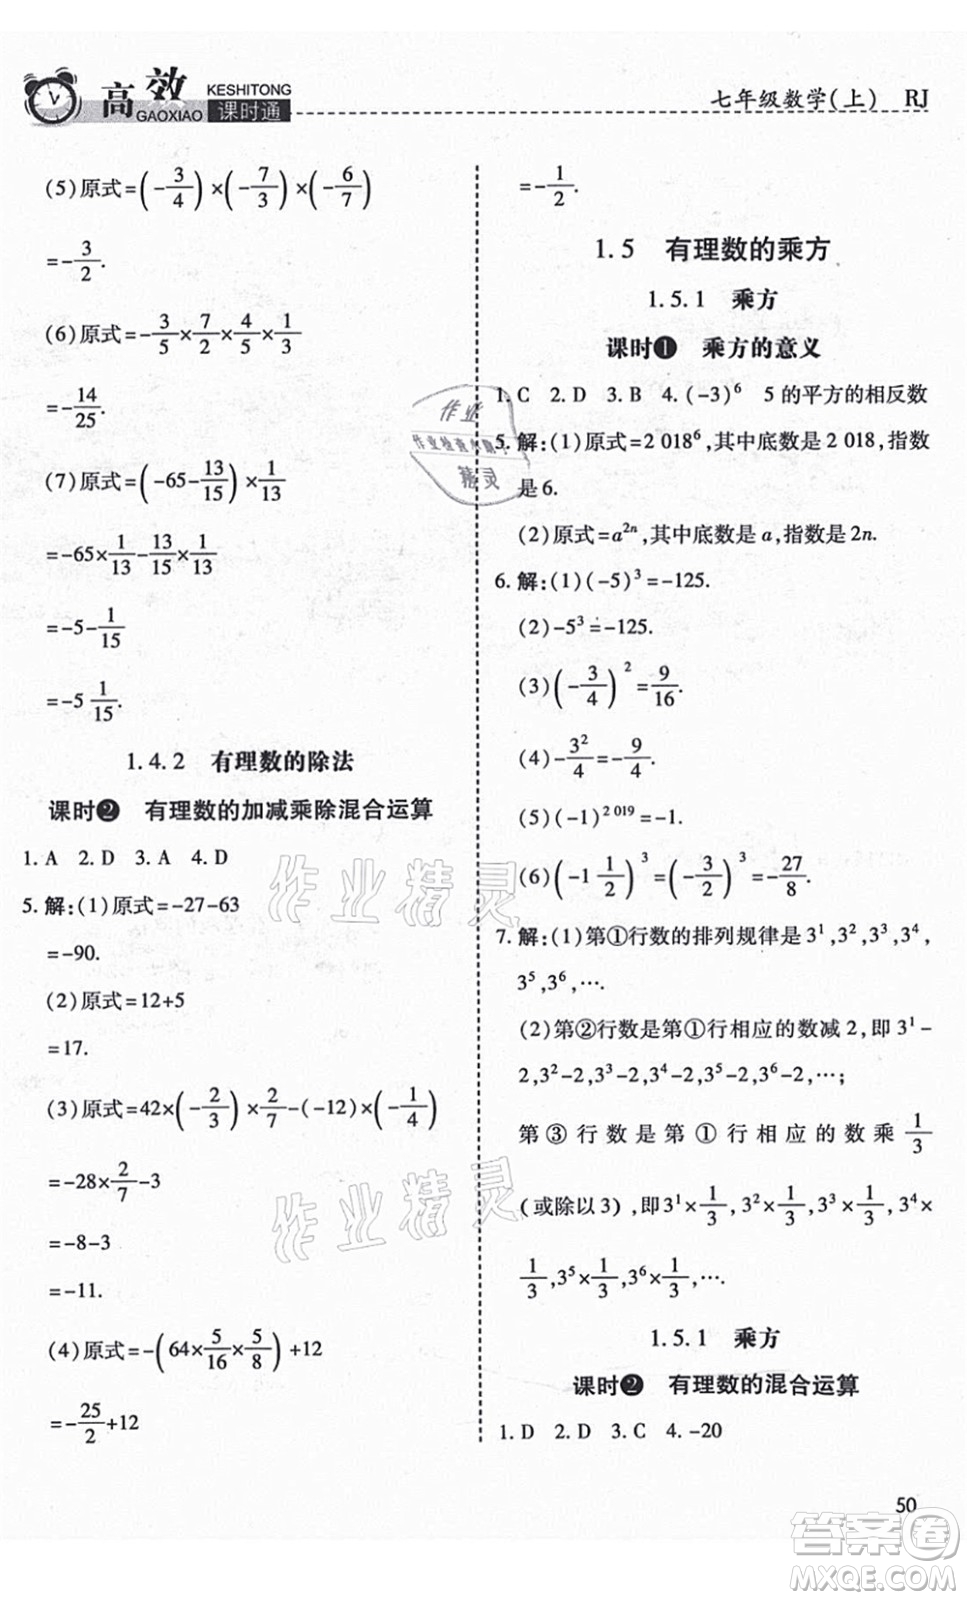 高效 KESHITONG
GAOXIAO 课时通
七年级数学(上) RJ
(5)原式=(-3/4)×(-7/3)×(-6/7)
=-3/2.
(6)原式=-3/5×7/2×4/5×1/3
=-14/25.
(7)原式=(-65-13/15)×1/13
=-65×1/13-13/15×1/13
=-5-1/15
=-5 1/15.
1.4.2 有理数的除法
课时❷ 有理数的加减乘除混合运算
1. A 2. D 3. A 4. D
5. 解:(1)原式=-27-63
=-90.
(2)原式=12+5
=17.
(3)原式=42×(-2/3)×2/7-(-12)×(-1/4)
=-28×2/7-3
=-8-3
=-11.
(4)原式=-(64×5/16×5/8)+12
=-25/2+12
=-1/2.
1.5 有理数的乘方
1.5.1 乘方
课时❶ 乘方的意义
1. C 2. D 3. B 4. (-3)⁶ 5的平方的相反数
5. 解:(1)原式=2 018⁶,其中底数是2 018,指数
是6.
(2)原式=a²ⁿ,其中底数是a,指数是2n.
6. 解:(1)(-5)³=-125.
(2)-5³=-125.
(3)(-3/4)²=9/16.
(4)-3²/4=-9/4.
(5)(-1)²⁰¹⁹=-1.
(6)(-1 1/2)³=(-3/2)³=-27/8.
7. 解:(1)第①行数的排列规律是3¹,3²,3³,3⁴,
3⁵,3⁶,….
(2)第②行数是第①行相应的数减2,即3¹-
2,3²-2,3³-2,3⁴-2,3⁵-2,3⁶-2,…;
第③行数是第①行相应的数乘1/3
(或除以3),即3¹×1/3,3²×1/3,3³×1/3,3⁴×
1/3,3⁵×1/3,3⁶×1/3,….
1.5.1 乘方
课时❷ 有理数的混合运算
1. D 2. D 3. C 4. -20
50
作业
作业检查
精灵
作业精灵
作业精灵
答案卷
MXQE.COM